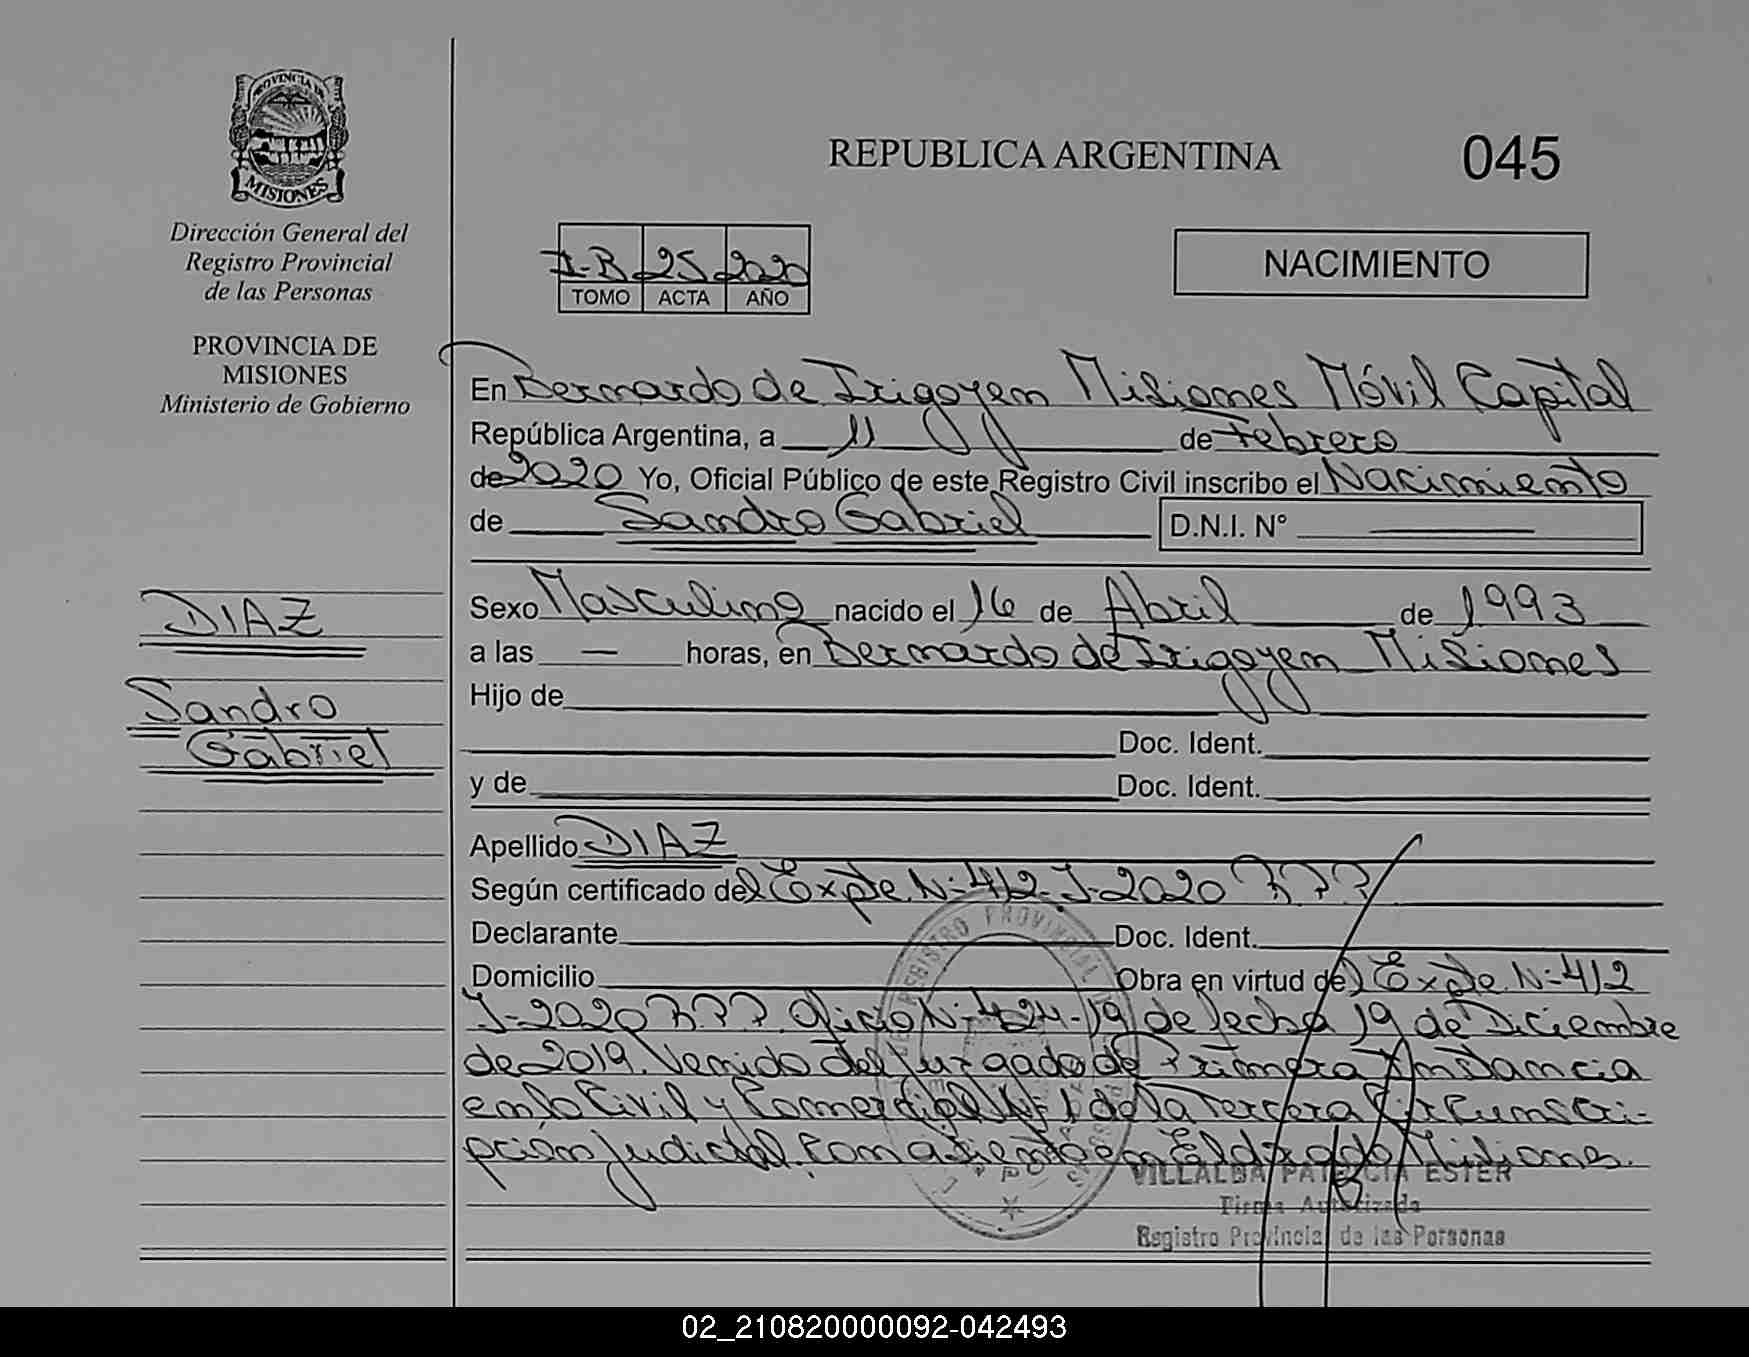 PROVINCIA DE
MISIONES
Dirección General del
Registro Provincial
de las Personas
PROVINCIA DE
MISIONES
Ministerio de Gobierno
DIAZ
Sandro
Gabriel
REPUBLICA ARGENTINA
045
I-B 25 2020
TOMO ACTA AÑO
NACIMIENTO
En Bernardo de Irigoyen Misiones Móvil Capital
República Argentina, a 11 de Febrero
de 2020 Yo, Oficial Público de este Registro Civil inscribo el Nacimiento
de Sandro Gabriel D.N.I. N° —
Sexo Masculino nacido el 16 de Abril de 1993
a las — horas, en Bernardo de Irigoyen Misiones
Hijo de
Doc. Ident.
y de Doc. Ident.
Apellido DIAZ
Según certificado del Expte. N-412-J-2020
Declarante Doc. Ident.
Domicilio Obra en virtud del Expte. N-412
J-2020 Oficio N-424-19 de fecha 19 de Diciembre
de 2019. Venido del Juzgado de Primera Instancia
en lo Civil y Comercial N-1 de la Tercera Circunscri-
pción judicial. Con asiento en Eldorado Misiones.
REGISTRO PROVINCIAL
VILLALBA PATRICIA ESTER
Firma Autorizada
Registro Provincial de las Personas
02_210820000092-042493